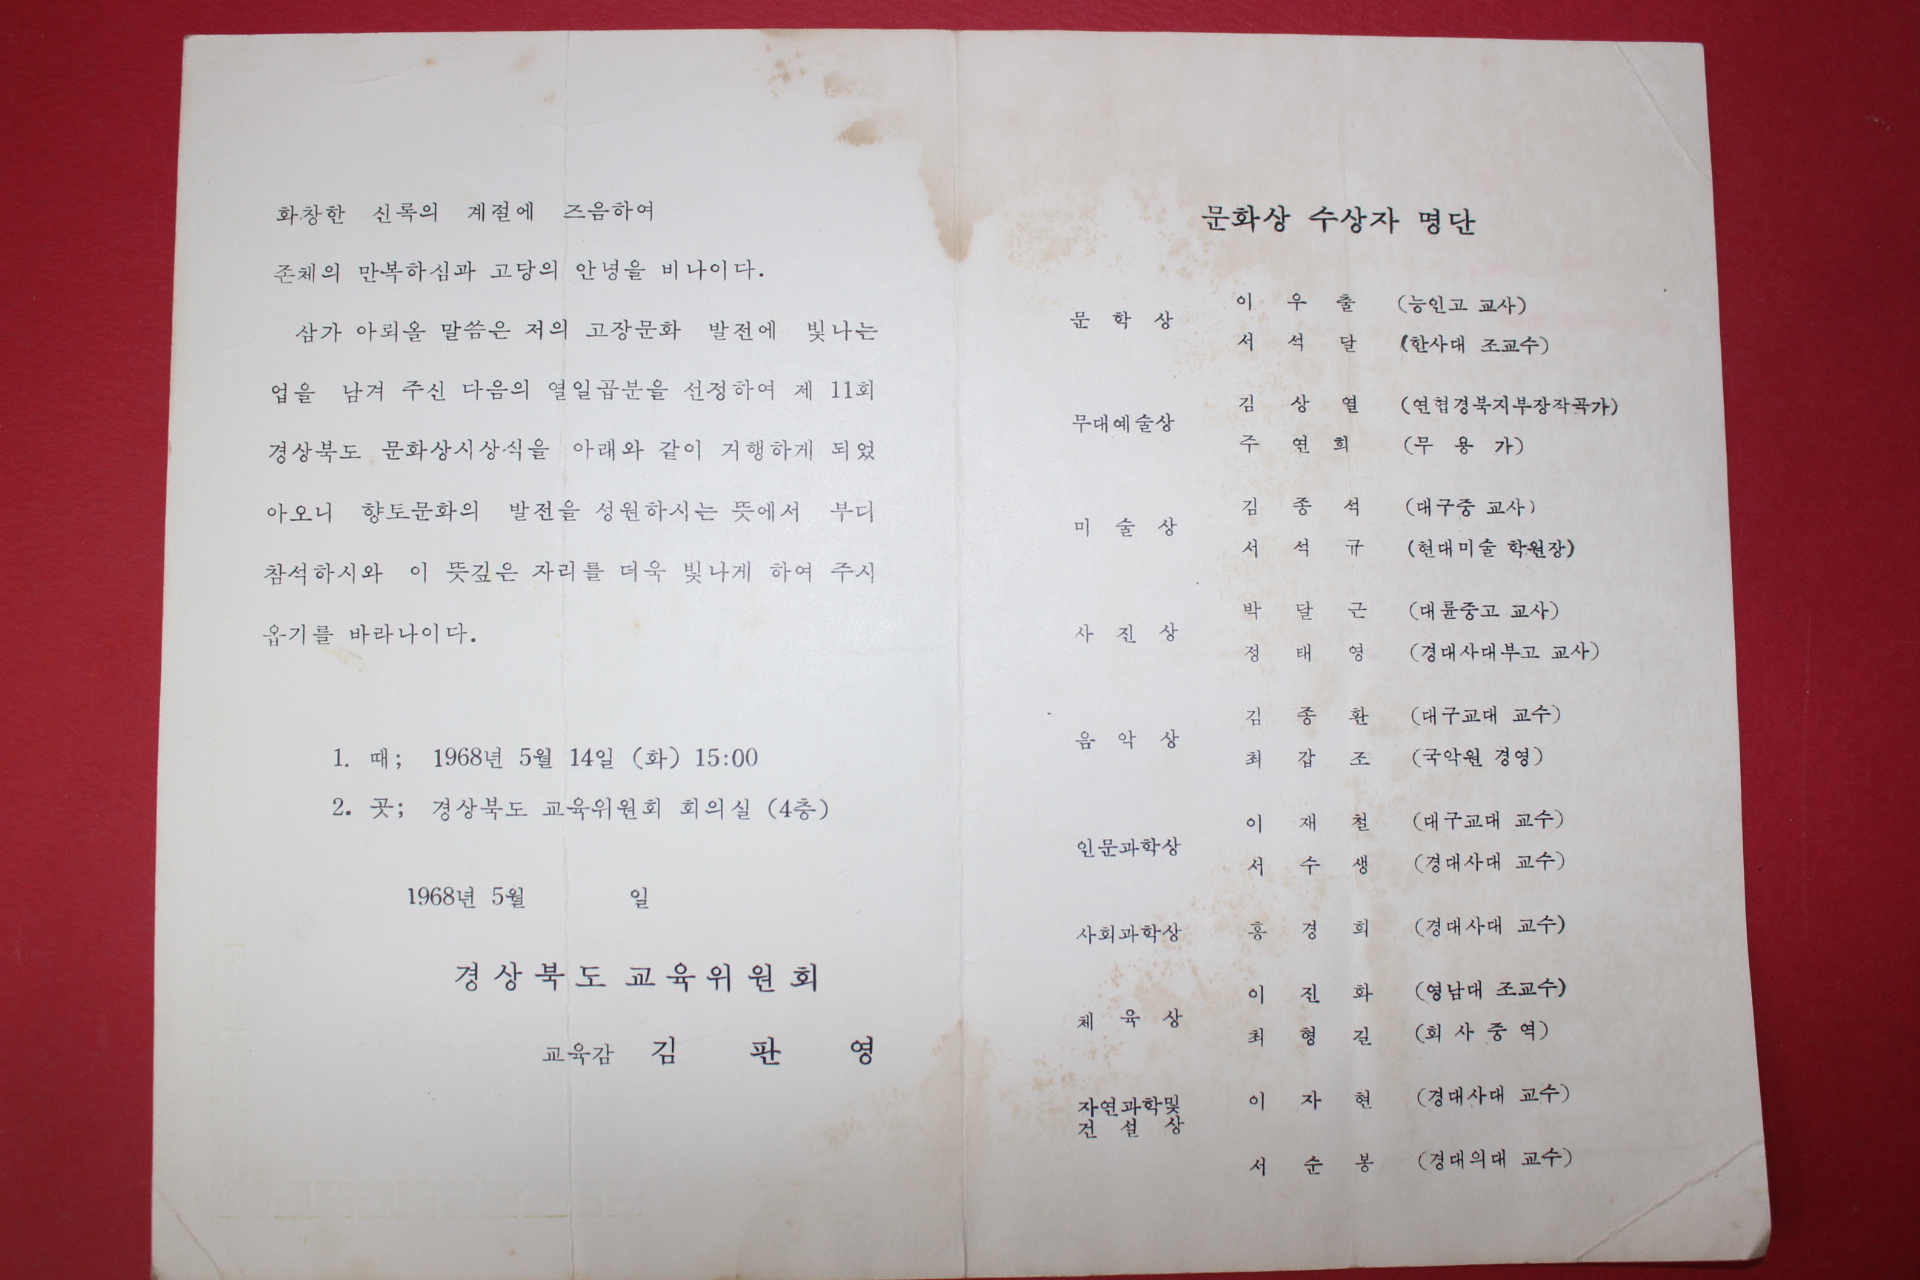 화창한 신록의 계절에 즈음하여
존체의 만복하심과 고당의 안녕을 비나이다.
삼가 아뢰올 말씀은 저의 고장문화 발전에 빛나는
업을 남겨 주신 다음의 열일곱분을 선정하여 제 11회
경상북도 문화상시상식을 아래와 같이 거행하게 되었
아오니 향토문화의 발전을 성원하시는 뜻에서 부디
참석하시와 이 뜻깊은 자리를 더욱 빛나게 하여 주시
옵기를 바라나이다.
1. 때; 1968년 5월 14일 (화) 15:00
2. 곳; 경상북도 교육위원회 회의실 (4층)
1968년 5월 일
경상북도 교육위원회
교육감 김 판 영
문화상 수상자 명단
문 학 상
이 우 출 (능인고 교사)
서 석 달 (한사대 조교수)
무대예술상
김 상 열 (연협경북지부장작곡가)
주 연 희 (무 용 가)
미 술 상
김 종 석 (대구중 교사)
서 석 규 (현대미술 학원장)
사 진 상
박 달 근 (대륜중고 교사)
정 태 영 (경대사대부고 교사)
음 악 상
김 종 환 (대구교대 교수)
최 갑 조 (국악원 경영)
인문과학상
이 재 철 (대구교대 교수)
서 수 생 (경대사대 교수)
사회과학상
홍 경 희 (경대사대 교수)
체 육 상
이 진 화 (영남대 조교수)
최 형 길 (회 사 중 역)
자연과학및
건 설 상
이 자 현 (경대사대 교수)
서 순 봉 (경대의대 교수)